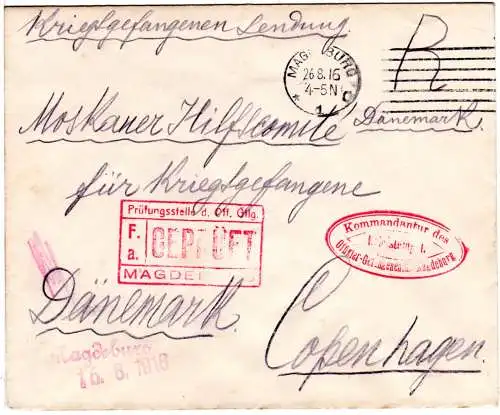 Kriegsgefangenen Sendung.
R
MAGDEBURG
26.8.16
4-5N
* 1 c
Moskauer Hilfscomite
Dänemark
für Kriegsgefangene
Prüfungsstelle d. Off. Gflg.
F. a. GEPRÜFT
MAGDEB
Kommandantur des
Offizier-Gefangenen Magdeburg
Dänemark.
Copenhagen.
Magdeburg
16. 8. 1916